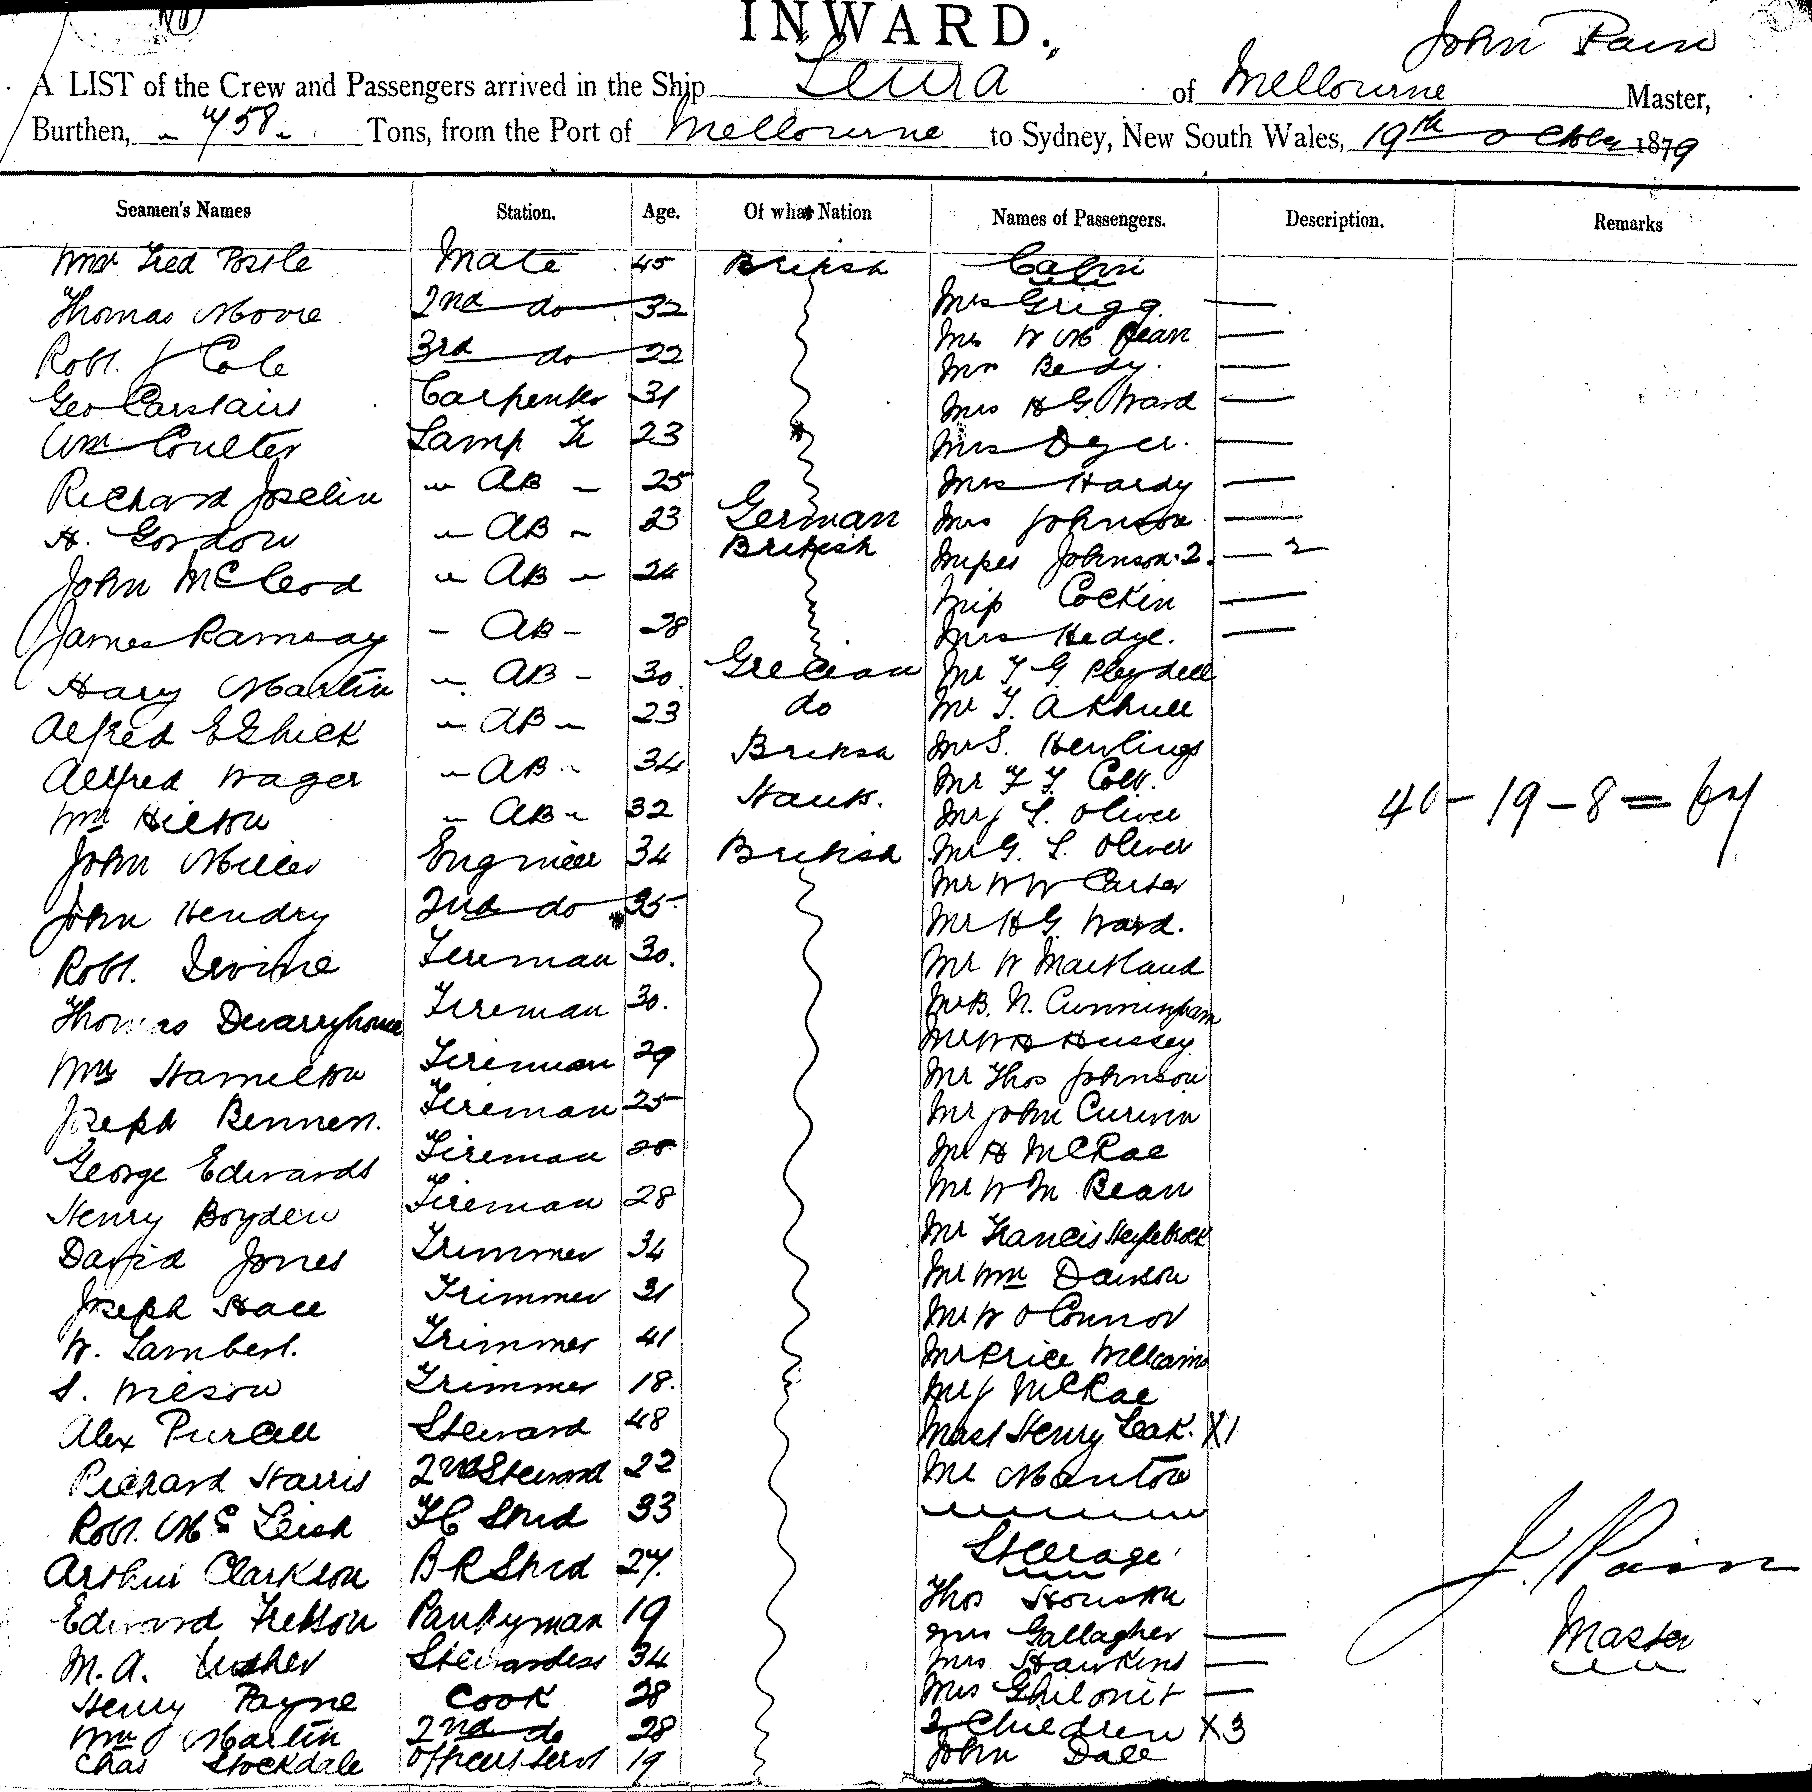 INWARD.
John Pain
A LIST of the Crew and Passengers arrived in the Ship Leura of Melbourne Master,
Burthen, 758 Tons, from the Port of Melbourne to Sydney, New South Wales, 19th October 1879
Seamen's Names Station. Age. Of what Nation Names of Passengers. Description. Remarks
Wm Fred Postle Mate 45 British Cabin
Thomas Moore 2nd do 32 Mrs Grigg —
Robt. J Cole 3rd do 22 Mrs W M Bean —
Geo Carstairs Carpenter 31 Mrs —
Wm Coulter Lamp Tr 23 Mrs H G Ward —
Richard Joselin " AB " 25 Mrs Dyer. —
H. Gordon " AB " 23 German Mrs Hardy —
John McLeod " AB " 24 British Mrs Johnson —
James Ramsay - AB - 28 Misses Johnson. 2. — 2
Hary Martin " AB - 30 Grecian Miss Cockin —
Alfred " AB " 23 do Mrs Hedge. —
Alfred Wager " AB " 34 British Mr F G Pleydell
Wm Hilton " AB " 32 Mr T.
John Miller Engineer 34 British Mr S. Henlings
John Hendry 2nd do 35 Mr F F
Robt. Irvine Fireman 30. Mr J S. Oliver
Thomas Fireman 30. Mr G. S. Oliver
Wm Hamilton Fireman 29 Mr W W Carter
Joseph Bennett. Fireman 25 Mr H G. Ward.
George Edwards Fireman 28 Mr W Maitland
Henry Boyden Fireman 28 Mr B. N. Cunningham
David Jones Trimmer 34 Mr W H Hussey
Joseph Hall Trimmer 31 Mr Thos Johnson
W. Lambert. Trimmer 41 Mr John Curwin
S. Wilson Trimmer 18. Mr H McRae
Alex Purcell Steward 48 Mr W M Bean
Richard Harris 2nd Steward 22 Mr Francis
Robt. Mc Leish F C Stwd 33 Mr Wm Dawson
Arthur Clarkson B R Stwd 27. Mr W O Connor
Edward Pantryman 19 Mr Price Williams
M. A. Stewardess 34 Mr J McRae
Henry Payne Cook 28 Mast Henry Leak. X1
Wm Martin 2nd do 28 Mr Manton
Chas Stockdale Officers Servt 19
Steerage
Thos Houston
Mrs Gallagher —
Mrs Hawkins —
Mrs —
2 Children X 3
John Dale
40 - 19 - 8 = 67
J. Pain
Master